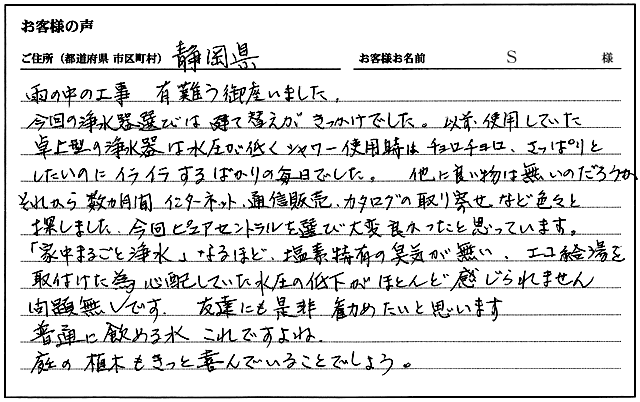 お客様の声
ご住所（都道府県 市区町村） 静岡県 お客様お名前 S 様
雨の中の工事 有難う御座いました。
今回の浄水器選びは 建て替えがきっかけでした。以前使用していた
卓上型の浄水器は水圧が低くシャワー使用時はチョロチョロ、さっぱりと
したいのにイライラするばかりの毎日でした。 他に良い物は無いのだろうか、
それから 数カ月間 インターネット、通信販売、カタログの取り寄せ など色々と
探しました、今回ピュアセントラルを選び大変良かったと思っています。
「家中まるごと浄水」なるほど、塩素特有の臭気が無い、エコ給湯を
取付けた為心配していた水圧の低下がほとんど感じられません
問題無しです. 友達にも是非 勧めたいと思います
普通に飲める水 これですよね.
庭の植木もきっと喜んでいることでしょう。